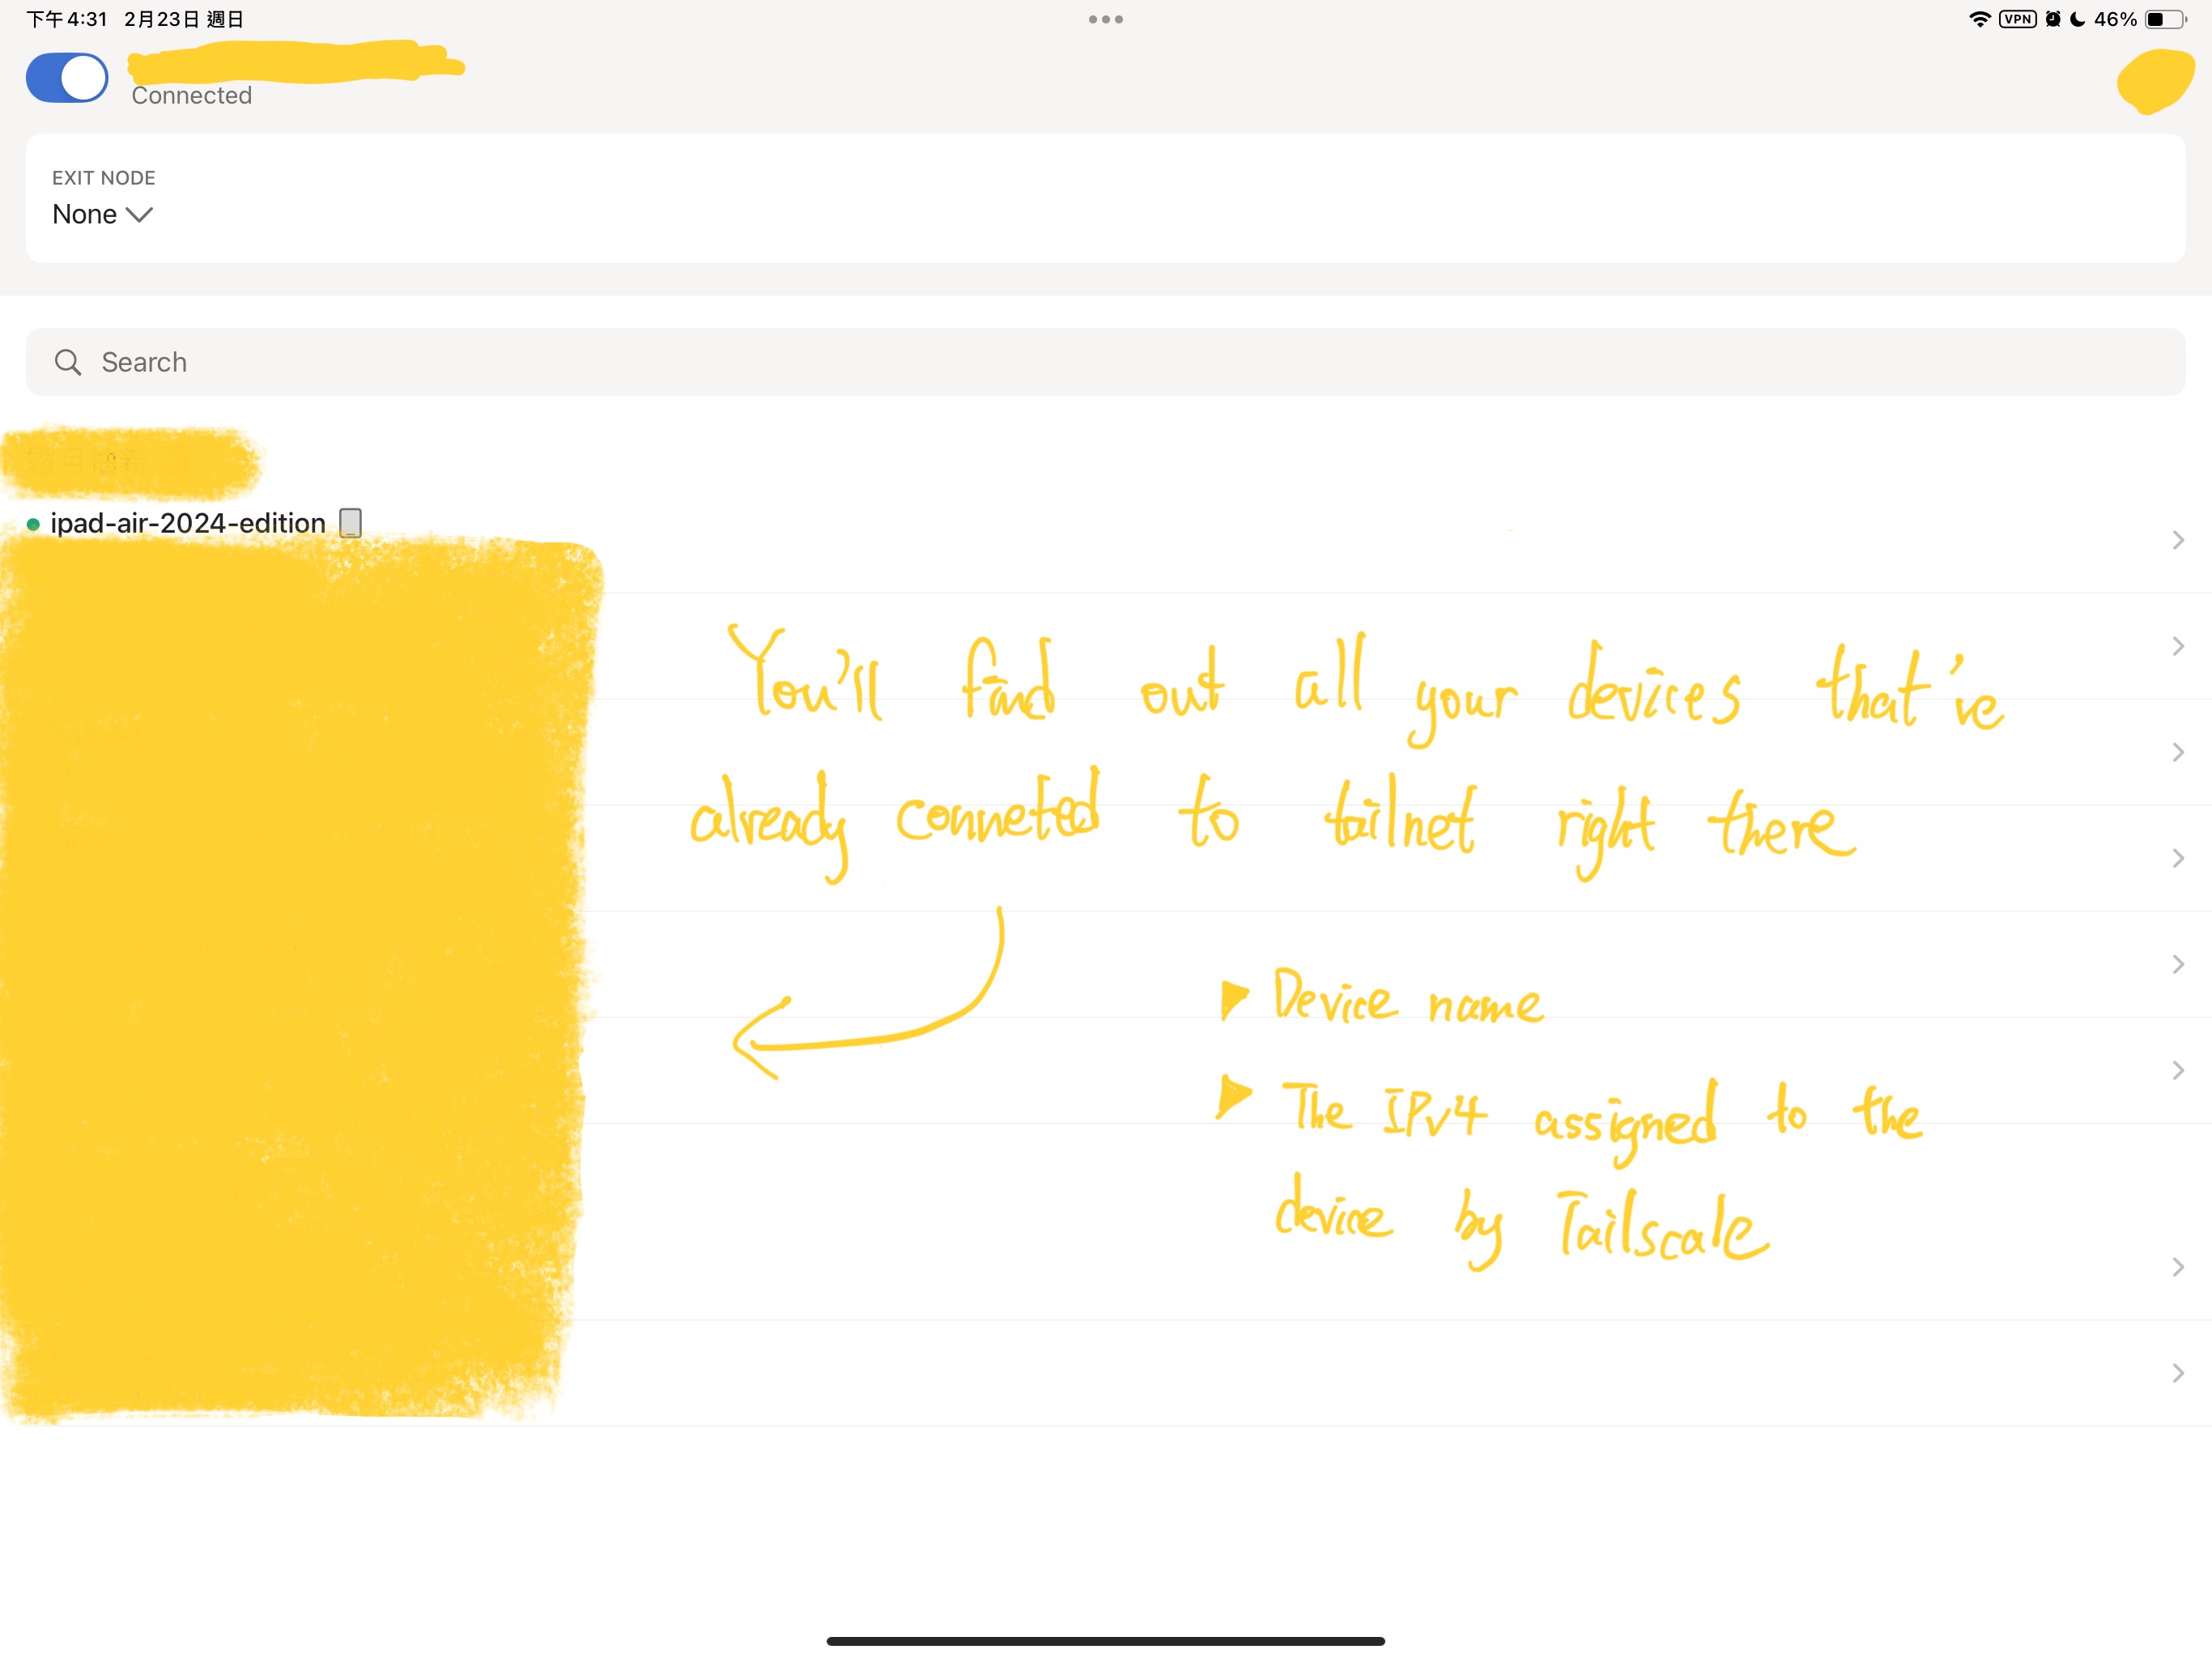 下午4:31 2月23日 週日
VPN 46%
Connected
EXIT NODE
None
Search
ipad-air-2024-edition
You'll find out all your devices that've
already conneted to tailnet right there
▶ Device name
▶ The IPv4 assigned to the
device by Tailscale